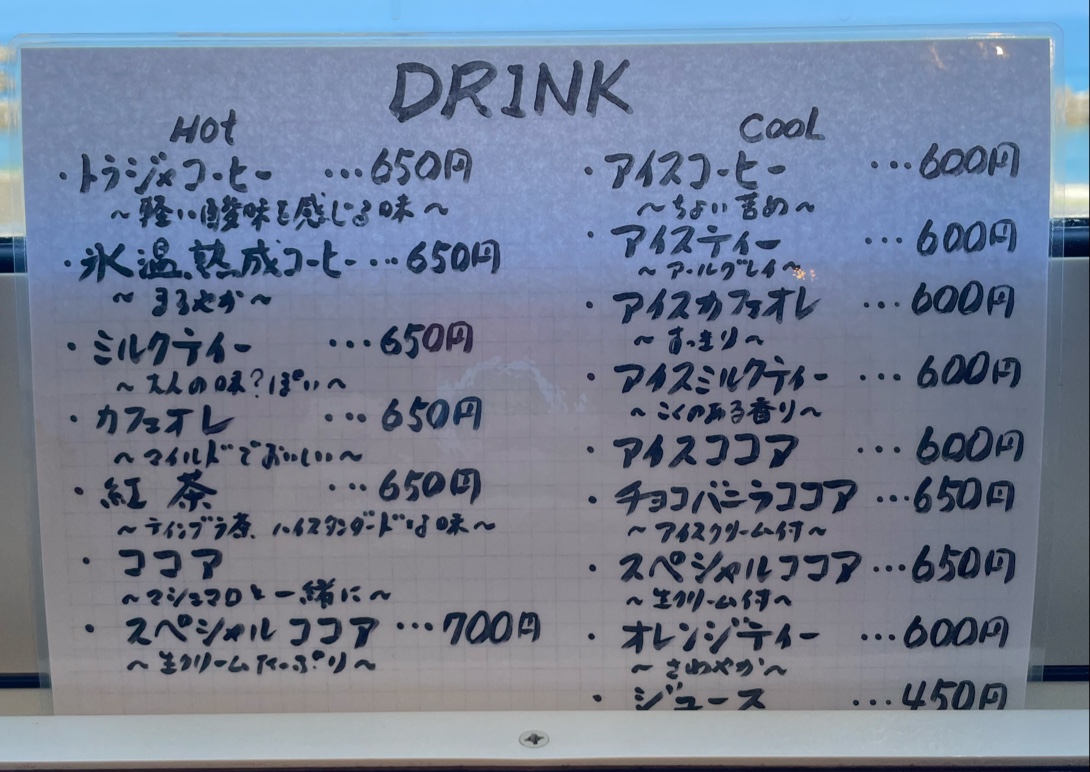 DRINK
Hot
・トラジャコーヒー …650円
～軽い酸味を感じる味～
・氷温熟成コーヒー…650円
～まろやか～
・ミルクティー …650円
～大人の味?ぽい～
・カフェオレ …650円
～マイルドでおいしい～
・紅茶 …650円
～ディンブラ茶、ハイスタンダードな味～
・ココア
～マシュマロと一緒に～
・スペシャルココア …700円
～生クリームたっぷり～
COOL
・アイスコーヒー …600円
～ちょい苦め～
・アイスティー …600円
～アールグレイ～
・アイスカフェオレ …600円
～すっきり～
・アイスミルクティー …600円
～こくのある香り～
・アイスココア …600円
・チョコバニラココア …650円
～アイスクリーム付～
・スペシャルココア …650円
～生クリーム付～
・オレンジティー …600円
～さわやか～
・ジュース …450円